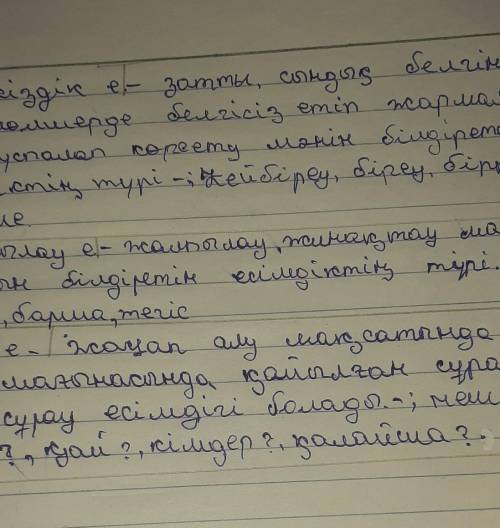 сіздік е - затты, сындық белгін
өлшерде белгісіз етіп жарма
успалап көрсету мәнін білдірет
іктің түрі -; кейбіреу, біреу, бірн
ме.
ылау е - жалпылау, жинақтау ма
ын білдіретін есімдіктің түрі.
, барша, тегіс
е - жауап алу мақсатында
мағынасында қойылған сұра
сұрау есімдігі болады. -; неш
?, қай?, кімдер?, қалайша?.